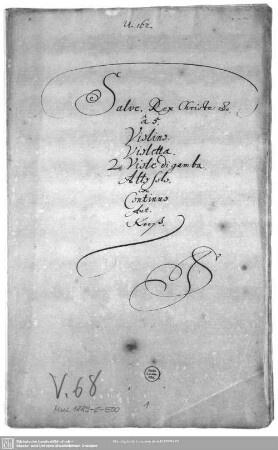 U. 162.
Salve. Rex Christe &c
à 5.
Violino
Violetta
2 Viole di gamba
Alto solo.
è
Continuo
Aut.
V. 68
Mus. 1825-E-500
1